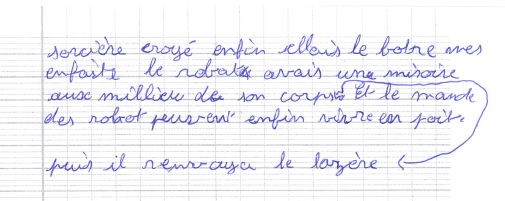 sorcière croyé enfin ellais le botre mes
enfaite le robat avais une miroire
aux millieu de son corps Et le monde
des robot peuvent enfin vivre en poit.
puis il renvoya le lazère